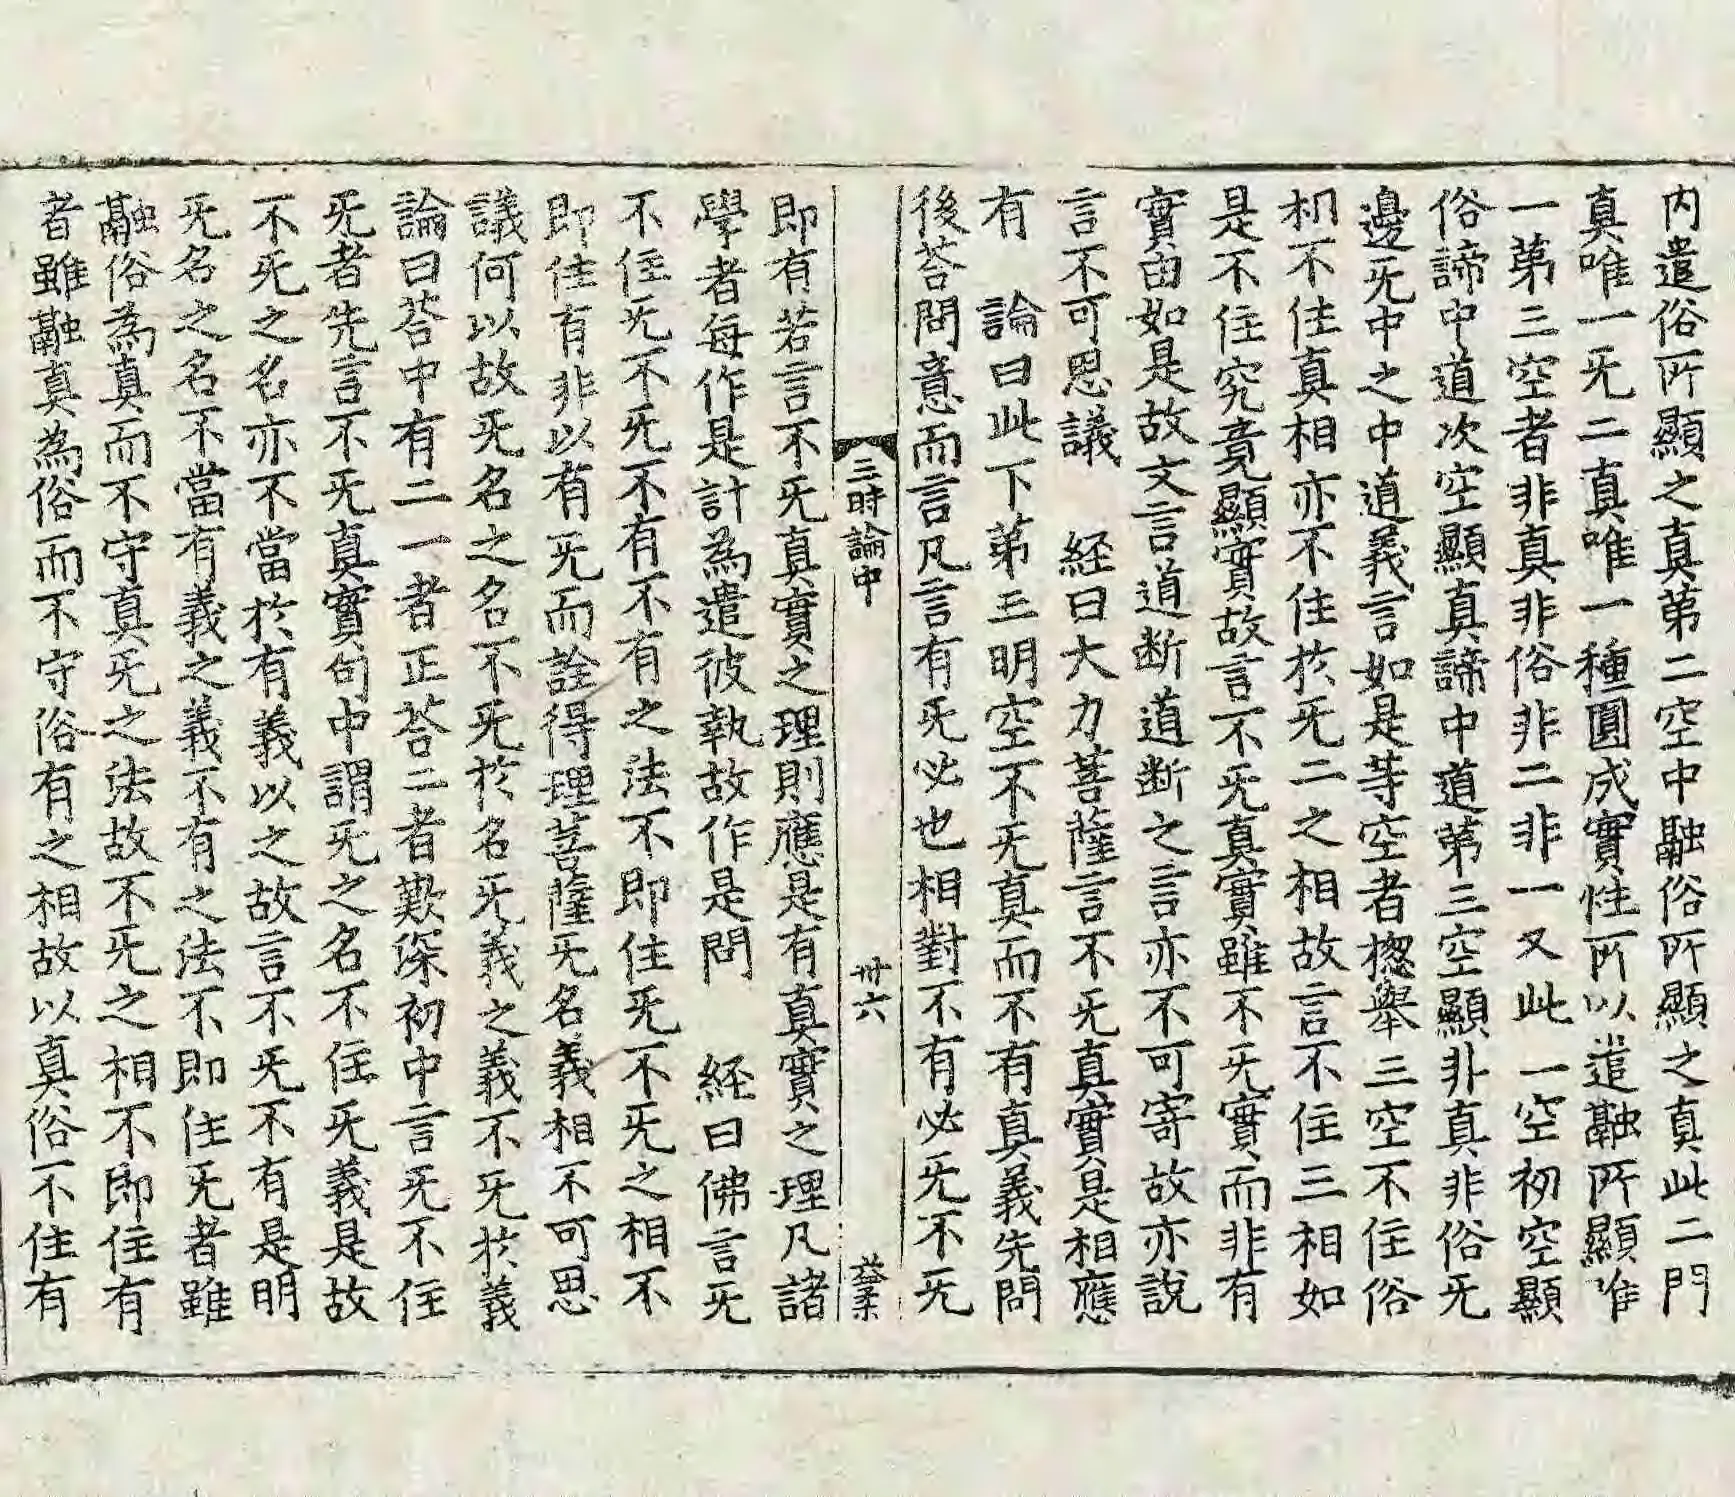 内遣俗所顯之真第二空中融俗所顯之真此二門
真唯一旡二真唯一種圓成實性所以遣融所顯唯
一第三空者非真非俗非二非一又此一空初空顯
俗諦中道次空顯真諦中道第三空顯非真非俗旡
邊旡中之中道義言如是等空者揔舉三空不住俗
相不住真相亦不住扵旡二之相故言不住三相如
是不住究竟顯實故言不旡真實雖不旡實而非有
實由如是故文言道断道断之言亦不可寄故亦說
言不可思議　経曰大力菩薩言不旡真實是相應
有　論曰此下第三明空不旡真而不有真義先問
後荅問意而言凡言有旡必也相對不有必旡不旡
三時論中　卅六　益柔
即有若言不旡真實之理則應是有真實之理凡諸
學者每作是計為遣彼執故作是問　経曰佛言旡
不住旡不旡不有不有之法不即住旡不旡之相不
即住有非以有旡而詮得理菩薩旡名義相不可思
議何以故旡名之名不旡於名旡義之義不旡扵義
論曰荅中有二一者正荅二者歎深初中言旡不住
旡者先言不旡真實句中謂旡之名不住旡義是故
不旡之名亦不當於有義以之故言不旡不有是明
旡名之名不當有義之義不有之法不即住旡者雖
融俗為真而不守真旡之法故不旡之相不即住有
者雖融真為俗而不守俗有之相故以真俗不住有